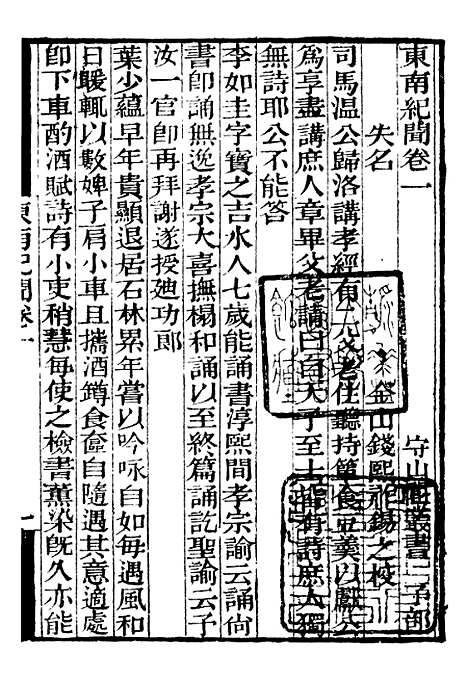 東南紀聞卷一 守山閣叢書 子部
失名 金山錢熙祚錫之校
司馬温公歸洛講孝經有二父老往聽持簞食豆羹以獻公
爲享盡講庶人章畢父老請曰自天子至士皆有詩庶人獨
無詩耶公不能答
李如圭字寶之吉水人七歲能誦書淳熙間孝宗諭云誦尙
書卽誦無逸孝宗大喜撫榻和誦以至終篇誦訖聖諭云予
汝一官卽再拜謝遂授廸功郎
葉少蘊早年貴顯退居石林累年嘗以吟咏自如每遇風和
日暖輒以數婢子肩小車且攜酒罇食奩自隨遇其意適處
卽下車酌酒賦詩有小吏稍慧每使之檢書薰染旣久亦能
東南紀聞卷一
一